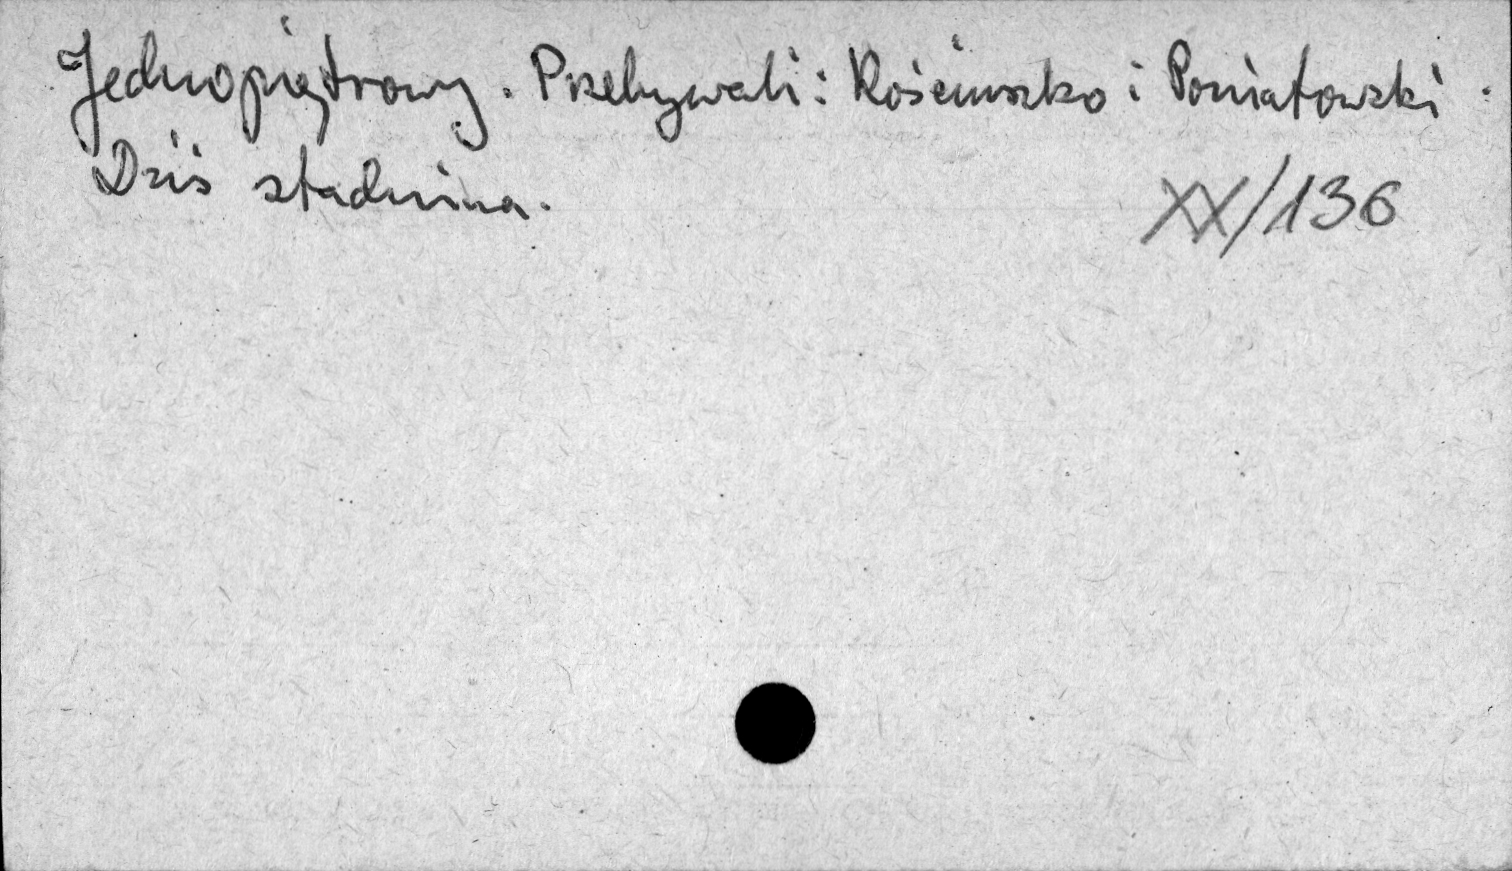 Jednopiętrowy. Przebywali: Kościuszko i Poniatowski.
Dziś stadnina.
XX/136